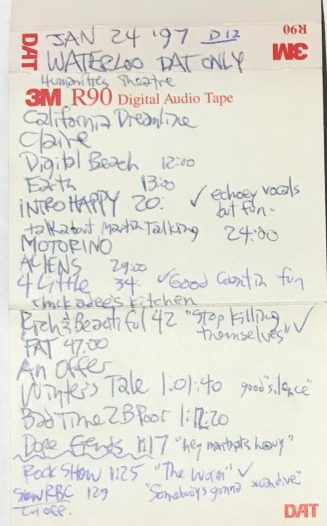 DAT
JAN 24 '97 D12
WATERLOO DAT ONLY
3M R90
Humanities Theatre
3M R90 Digital Audio Tape
California Dreamline
Claire
Digital Beach 12:00
Earth 13:00
INTRO HAPPY 20: ✓ echoey vocals
but fun.
talkabout Martin Talking 24:00
MOTORINO
ALIENS 29:00
4 Little 34. ✓ Good Count in fun
chickadee's kitchen
Rich & Beautiful 42 "Stop Killing
themselves" ✓
FAT 47:00
An Offer
Winter's Tale 1:01:40 good silence
Bad Time 2B Poor 1:12:20
Dope Fiends 1:17 "hey man that's heavy"
Rock Show 1:25 "The Worm" ✓
Slow RBC 129 "Somebody's gonna
off.
DAT